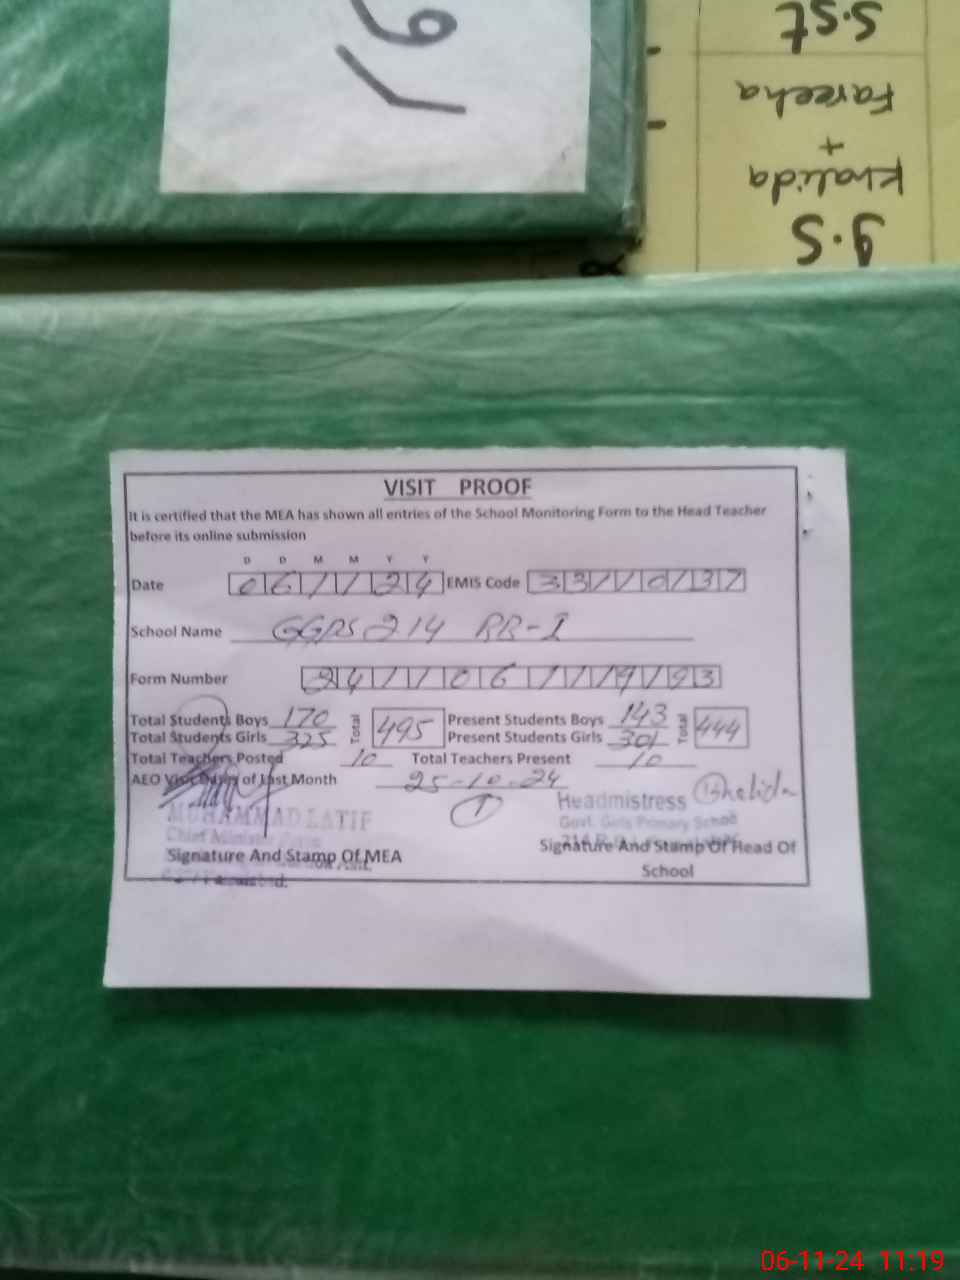 S.st
Fareeha
+
Khalida
g.S
VISIT PROOF
It is certified that the MEA has shown all entries of the School Monitoring Form to the Head Teacher
before its online submission
D D M M Y Y
Date 061124 EMIS Code 33110137
School Name GGPS 214 RB-I
Form Number 241106111993
Total Students Boys 170 Total 495 Present Students Boys 143 Total 444
Total Students Girls 325 Present Students Girls 301
Total Teachers Posted 10 Total Teachers Present 10
AEO Visit of Last Month 25-10-24
1
MUHAMMAD LATIF
Chief Minister
Headmistress Khalida
Govt. Girls Primary School
Signature And Stamp Of MEA
Signature And Stamp Of Head Of
School
06-11-24 11:19